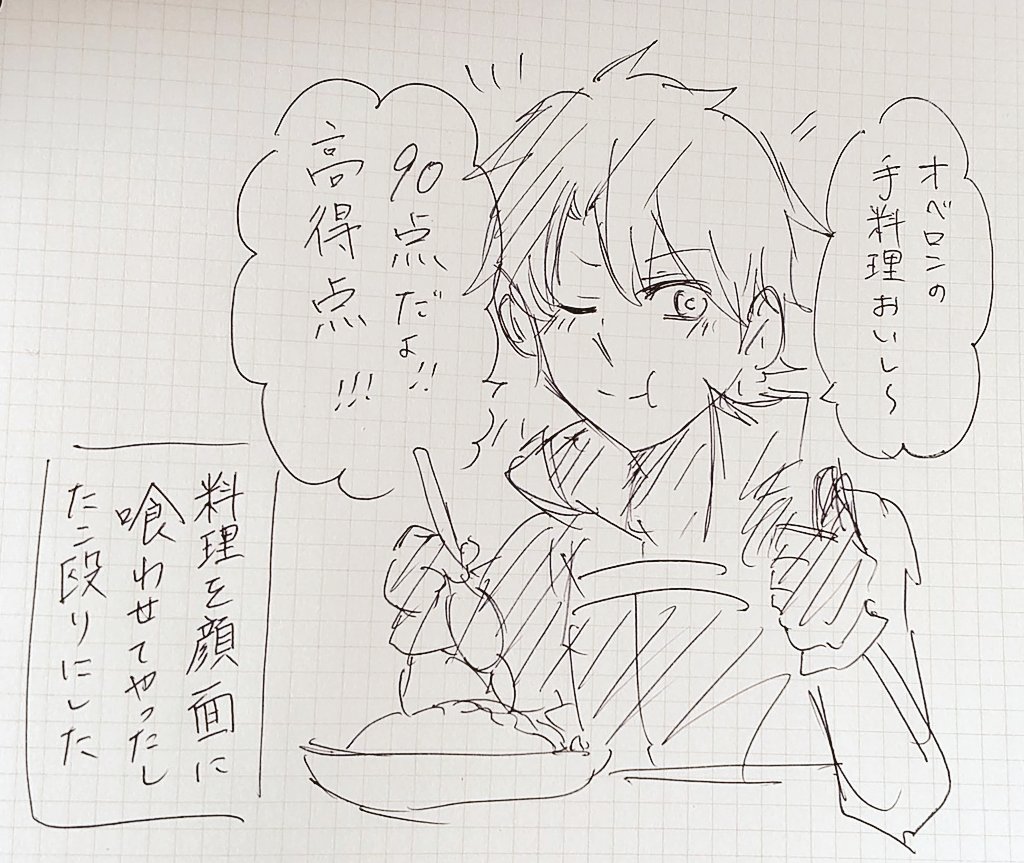 オベロンの
手料理おいし～
90点だよ!!
高得点!!!
料理を顔面に
喰わせてやったし
たこ殴りにした